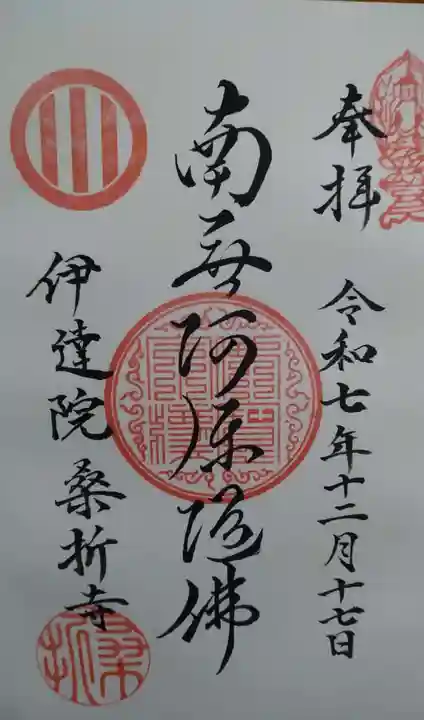 奉拝
令和七年十二月十七日
南無阿彌陀佛
伊達院 桑折寺
桑折